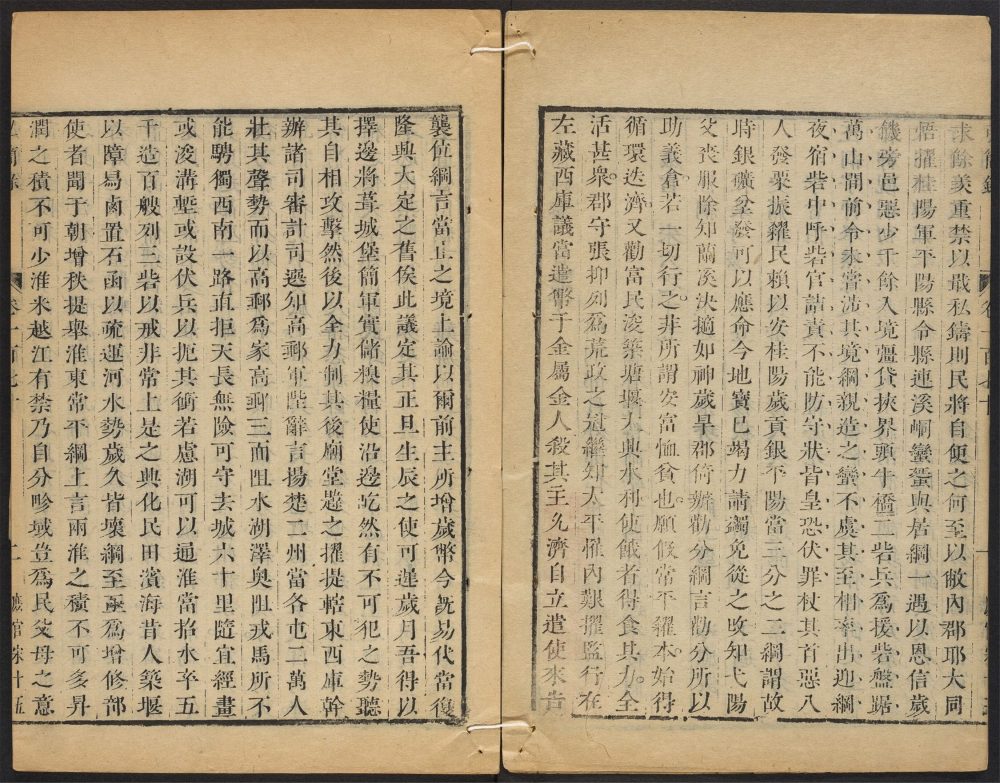 求餘羨重禁以戢私鑄則民將自便之何至以敝內郡耶大同
悟擢桂陽軍平陽縣令縣連溪峒蠻蜑與居綱一遇以恩信歲
饑旁邑惡少千餘入境彊貸挾界頭牛橋二砦兵爲援砦盤踞
萬山間前令未嘗涉其境綱親造之蠻不虞其至相率出迎綱
夜宿砦中呼砦官詰責不能防守狀皆皇恐伏罪杖其首惡八
人發粟振糶民賴以安桂陽歲貢銀平陽當三分之二綱謂故
時銀礦坌發可以應命今地寶已竭力請蠲免從之改知弋陽
父喪服除知蘭溪決擿如神歲旱郡倚辦勸分綱言勸分所以
助義倉若一切行之非所謂安富恤貧也願假常平糶本始得
循環迭濟又勸富民浚築塘堰大興水利使餓者得食其力全
活甚衆郡守張抑列爲荒政之冣繼知太平擢內艱擢監行在
左藏西庫議當遣幣于金屬金人殺其主允濟自立遣使來告
襲位綱言當止之境上諭以爾前主所增歲幣今旣易代當復
隆興大定之舊俟此議定其正旦生辰之使可遲歲月吾得以
擇邊將葺城堡簡軍實儲糗糧使沿邊屹然有不可犯之勢聽
其自相攻擊然後以全力制其後廟堂韙之擢提轄東西庫幹
辦諸司審計司選知高郵軍陛辭言揚楚二州當各屯二萬人
壯其聲勢而以高郵爲家高郵三面阻水湖澤奥阻戎馬所不
能騁獨西南一路直拒天長無險可守去城六十里隨宜經畫
或浚溝塹或設伏兵以扼其衝若慮湖可以通淮當招水卒五
千造百艘列三砦以戒非常上是之興化民田濱海昔人築堰
以障舄鹵置石函以疏運河水勢歲久皆壞綱至亟爲增修部
使者聞于朝增秩提舉淮東常平綱上言兩淮之積不可多昇
潤之積不可少淮米越江有禁乃自分畛域豈爲民父母之意